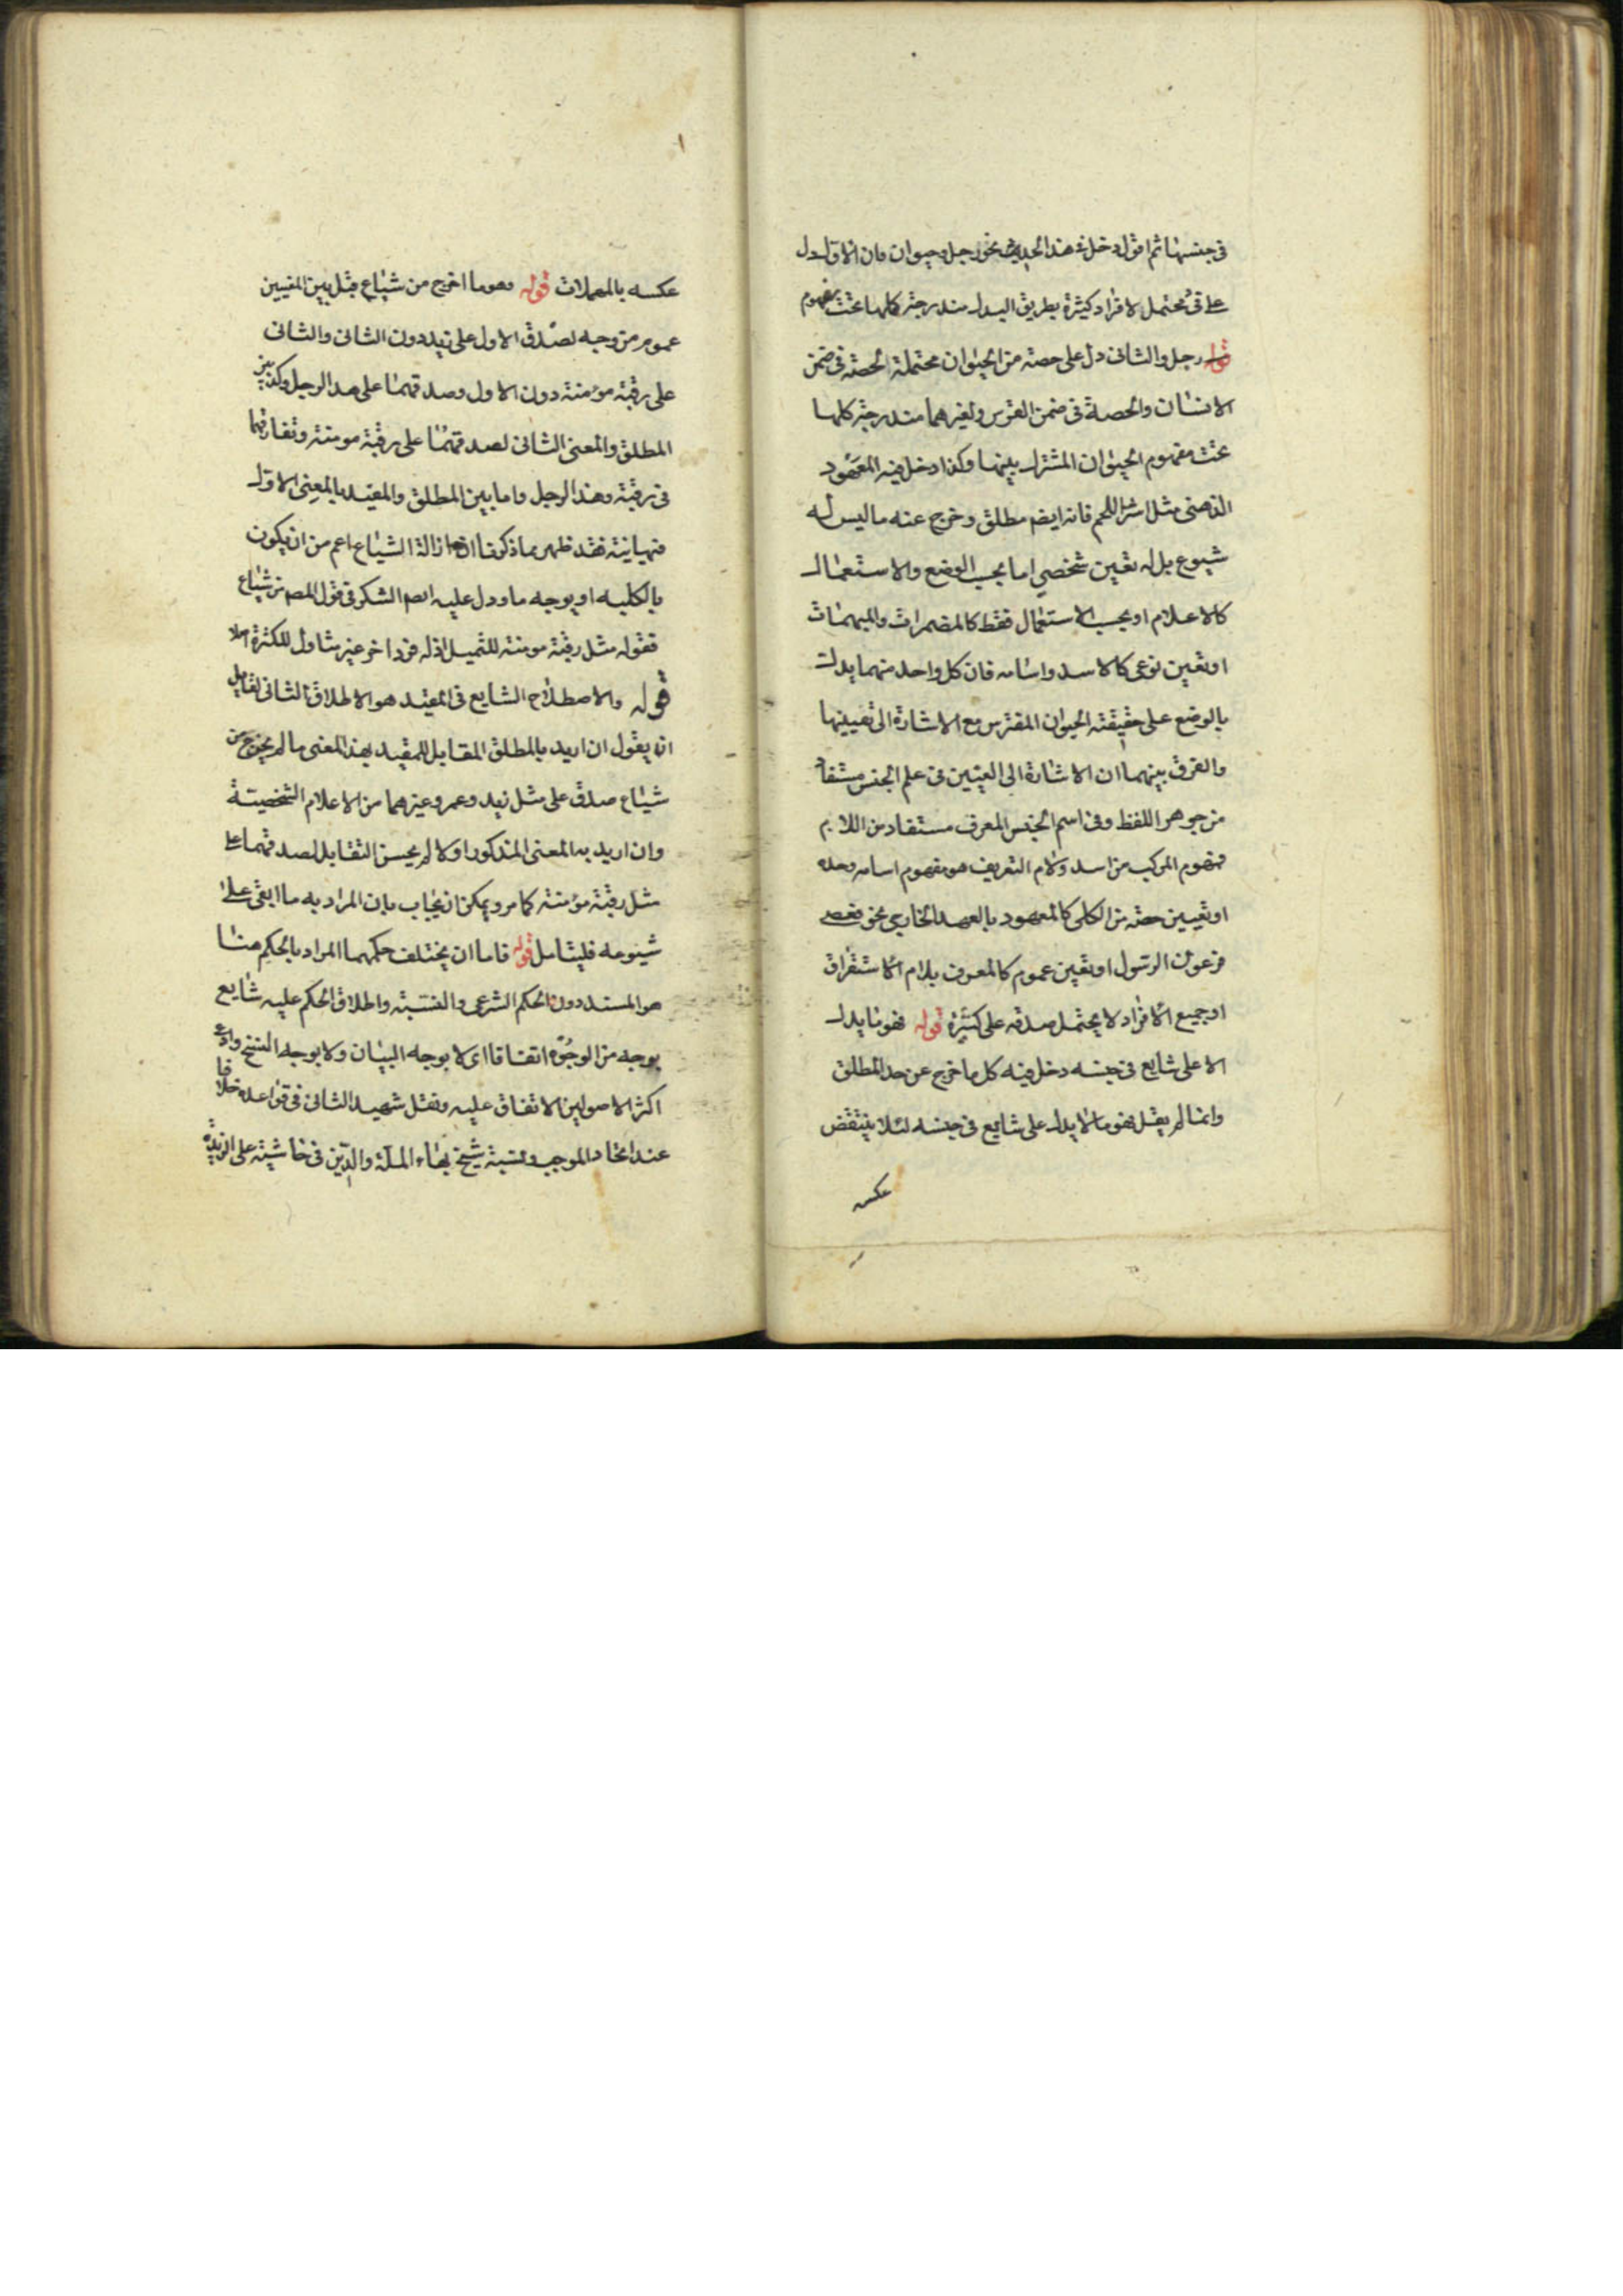 في جنسها ثم اقول دخل في هذا الحديث نحو رجل وحيوان فان الاول دل
على محتمل لافراد كثيرة بطريق البدل مندرجة كلها تحت مفهوم
رجل والثاني دل على حصة من الحيوان محتملة الحصة في ضمن
الانسان والحصة في ضمن الفرس ولغيرهما مندرجة كلها
تحت مفهوم الحيوان المشترك بينهما وكذا دخل فيه المعهود
الذهني مثل اشتر اللحم فانه ايضا مطلق وخرج عنه ما ليس له
شيوع بل له تعين شخصي اما بحسب الوضع والاستعمال
كالاعلام او بحسب الاستعمال فقط كالمضمرات والمبهمات
او تعين نوعي كالاسد واسامه فان كل واحد منهما يدل
بالوضع على حقيقة الحيوان المفترس مع الاشارة الى تعيينها
والفرق بينهما ان الاشارة الى التعين في علم الجنس مستفاد
من جوهر اللفظ وفي اسم الجنس المعرف مستفاد من اللام
فمفهوم المركب من اسد ولام التعريف هو مفهوم اسامه وحده
او تعيين حصة من الكلي كالمعهود بالعهد الخارجي نحو فعصى
فرعون الرسول او تعين عموم كالمعرف بلام الاستغراق
او جميع الافراد لا يحتمل صدقه على كثيرة قوله فهو ما يدل
الا على شايع في جنسه دخل فيه كل ما خرج عن حد المطلق
وانما لم يقل فهو ما لا يدل على شايع في جنسه لئلا ينتقض
عكسه
عكسه بالمهملات قوله وهو ما اخرج من شياع قيل بين المعنيين
عموم من وجه لصدق الاول على زيد دون الثاني والثاني
على رقبة مؤمنة دون الاول وصدقهما على هذا الرجل وكذا بين
المطلق والمعنى الثاني لصدقهما على رقبة مومنة وتفارقهما
في رقبة وهذا الرجل واما بين المطلق والمقيد بالمعنى الاول
فمباينة فقد ظهر مما ذكرنا ان ازالة الشياع اعم من ان يكون
بالكلية او بوجه ما ودل عليه ايضا الشكر في قول المصم من شياع
فقوله مثل رقبة مومنة للتمثيل اذ له فرد اخر غير متناول للكثرة اصلا
قوله والاصطلاح الشايع في المقيد هو الاطلاق الثاني لقايل
ان يقول ان اريد بالمطلق المقابل للمقيد بهذا المعنى ما لم يخرج من
شياع صدق على مثل زيد وعمرو وغيرهما من الاعلام الشخصية
وان اريد به المعنى المذكور اولا لم يحسن التقابل لصدقهما على
مثل رقبة مؤمنة كما مر ويمكن ان يجاب بان المراد به ما ابقى على
شيوعه فليتامل قوله فاما ان يختلف حكمهما المراد بالحكم هنا
هو المسند دون الحكم الشرعي والنسبة واطلاق الحكم عليه شايع
بوجه من الوجوه اتفاقا اي لا بوجه البيان ولا بوجه النسخ وادعى
اكثر الاصولين الاتفاق عليه ونقل شهيد الثاني في قواعده خلافا
عند اتحاد الموجب ونسبة شيخ بهاء الملة والدين في حاشيته على الزبدة